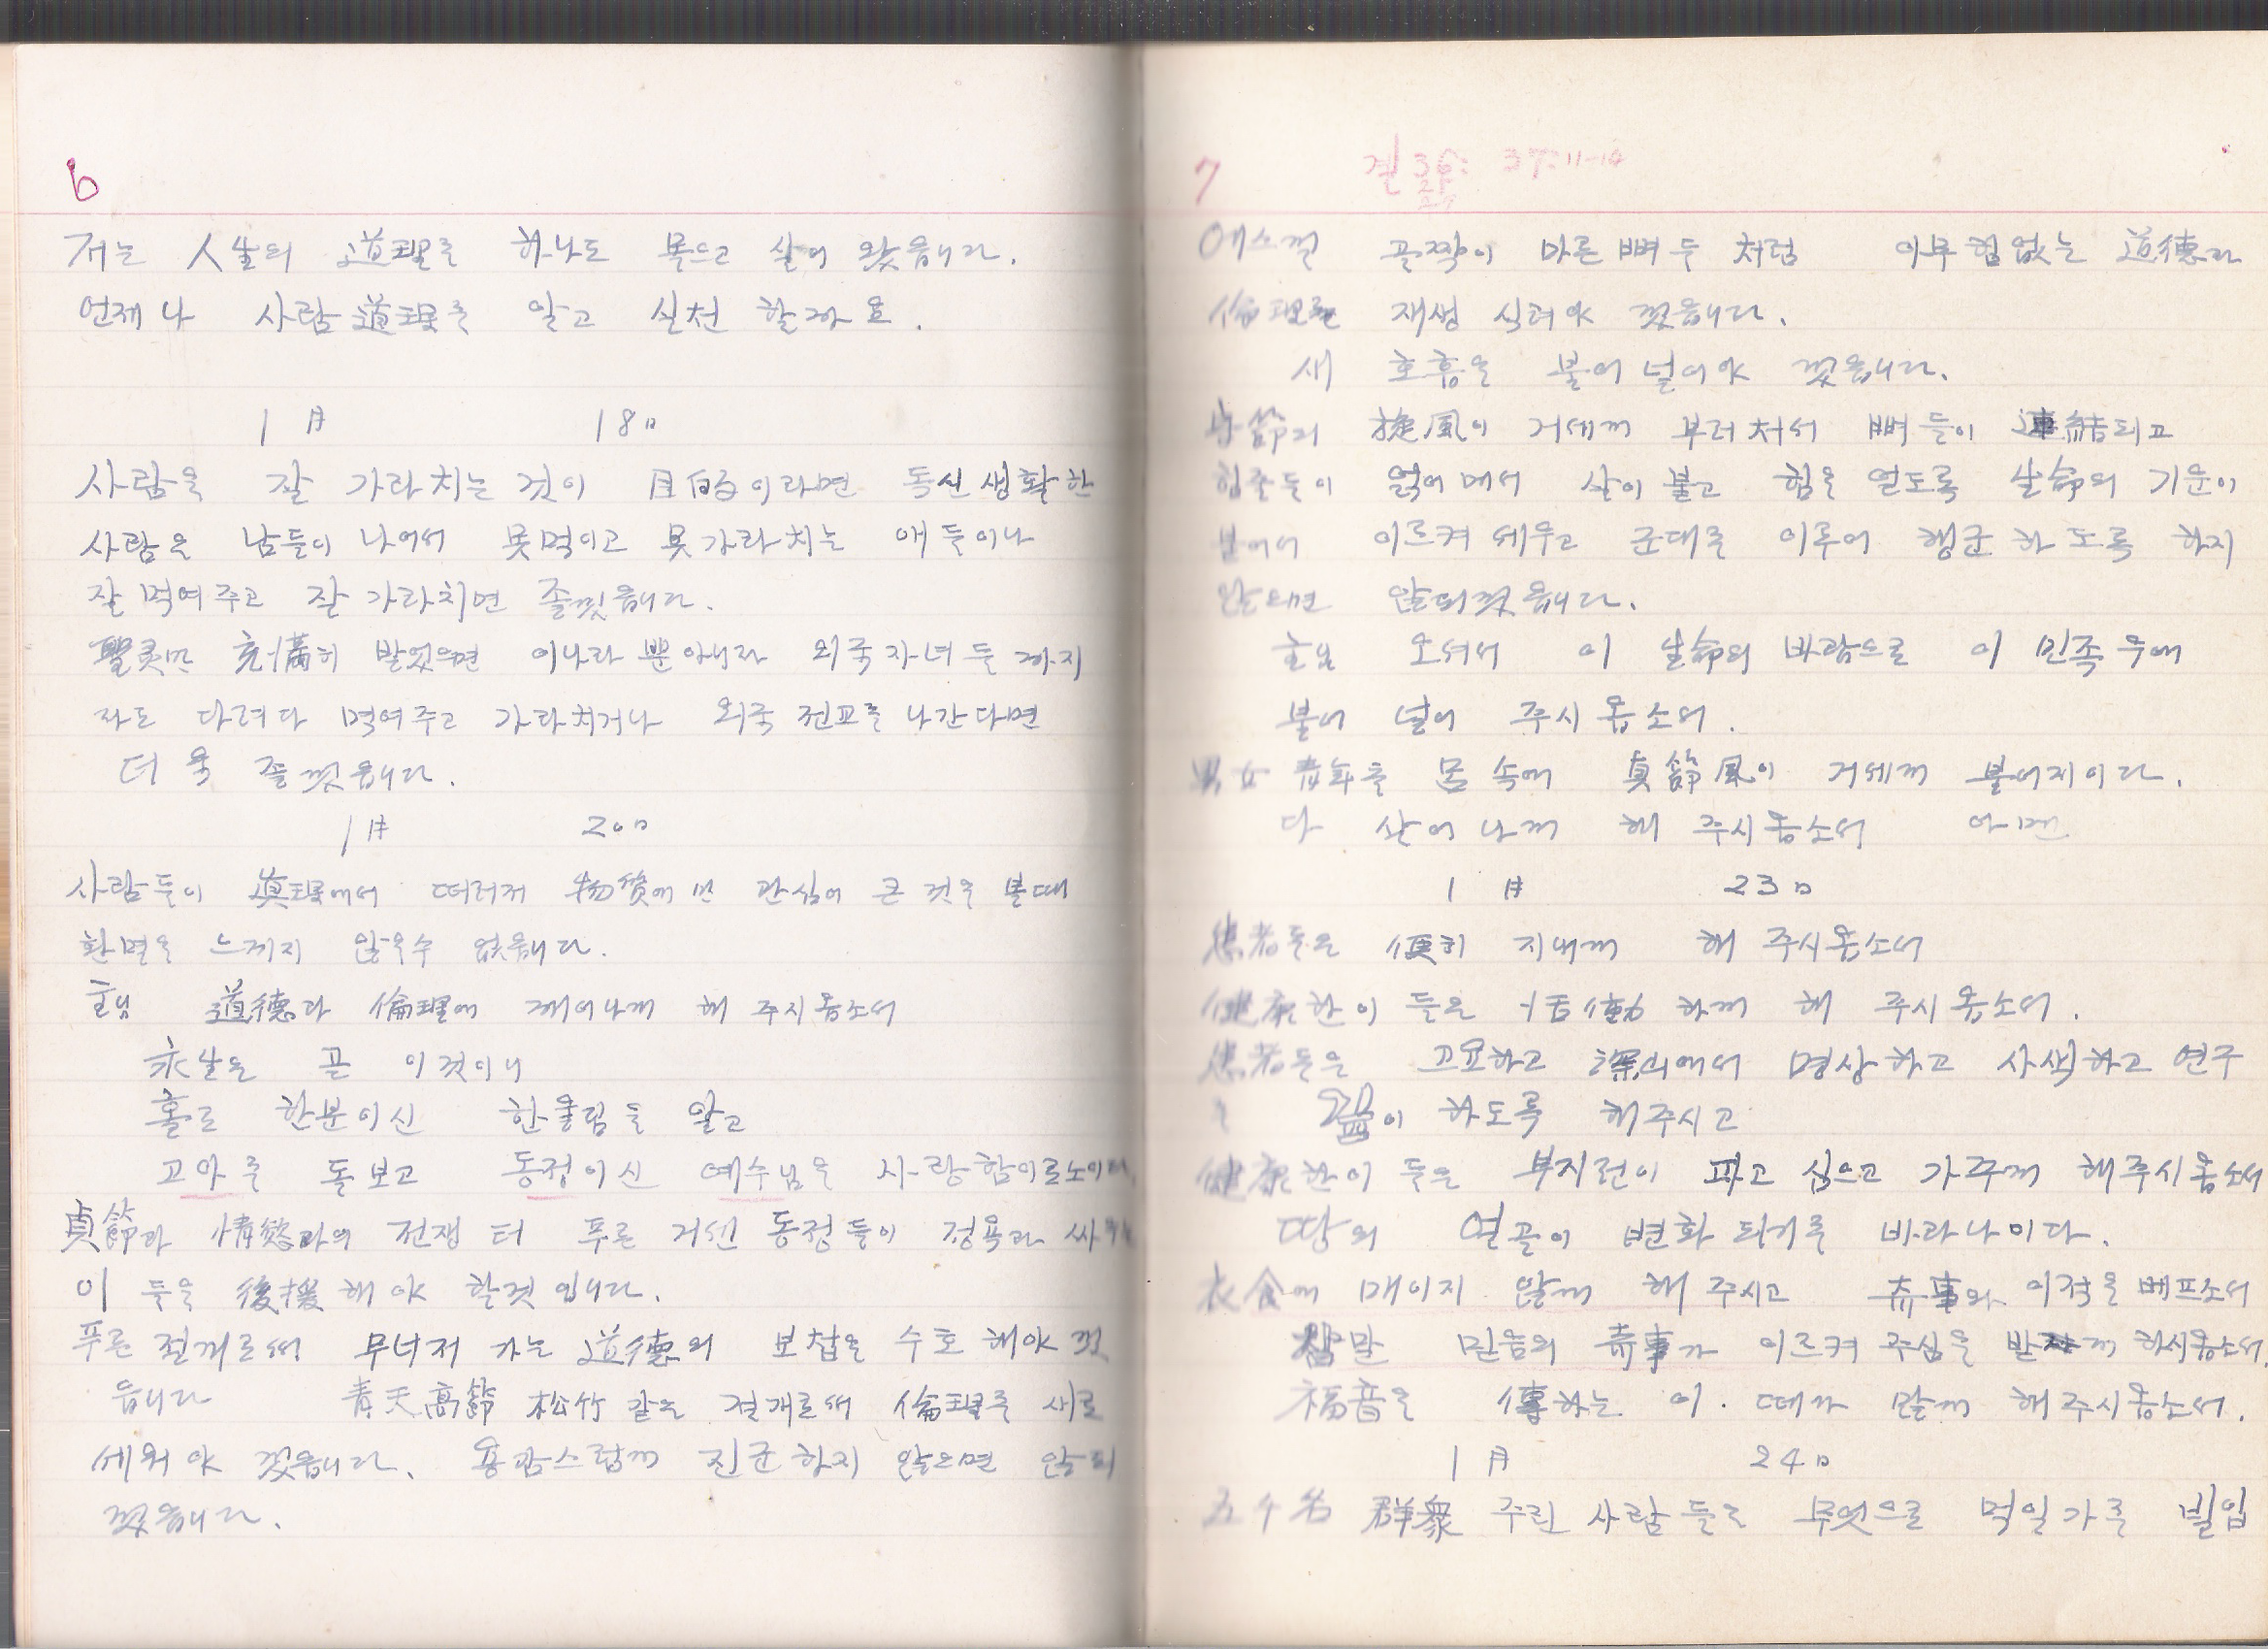 6
저는 人生의 道理를 하나도 몰으고 살어 왔읍니다.
언제나 사람 道理를 알고 실천 할까요.
1月 18日
사람을 잘 가라치는 것이 目的이라면 독신생활한
사람은 남들이 나어서 못먹이고 못가라치는 애들이나
잘 먹여주고 잘 가라치면 졸껏읍니다.
聖灵만 充満히 받었으면 이나라 뿐 아니라 외국자녀들 까지
라도 다려다 먹여주고 가라치거나 외국 전교를 나간다면
더욱 졸껏읍니다.
1月 20日
사람들이 眞理에서 떠러저 物質에만 관심이 큰 것을 볼때
환멸을 느끼지 않을수 없읍니다.
主님 道德과 倫理에 깨어나께 해 주시옵소서
永生은 곧 이것이니
홀로 한분이신 한울님을 알고
고아를 돌보고 동정이신 예수님을 사랑함이로소이다.
貞節과 情慾과의 전쟁터 푸른 거센 동정들이 정욕과 싸우는
이들을 後援해야 할것입니다.
푸른 절개로써 무너저 가는 道德의 보첩을 수호 해야 껏
읍니다 青天高節 松竹같은 절개로써 倫理를 새로
세워야 껏읍니다. 용감스럽께 진군하지 않으면 않되
껏읍니다.
7 겔 36: 37:11-14
에스겔 골짝이 마른 뼈들 처럼 아무 힘없는 道德과
倫理를 재생 식려야 껏읍니다.
새 호흡을 불어 널어야 껏읍니다.
貞節의 旋風이 거세게 부러처서 뼈들이 連結되고
힘줄들이 얽어매서 살이 붙고 힘을 얻도록 生命의 기운이
불어서 이르켜 세우고 군대를 이루어 행군하도록 하지
않으면 않되껏읍니다.
主님 오셔서 이 生命의 바람으로 이 민족 우에
불어 널어 주시옵소서.
男女 青年들 몸 속에 貞節風이 거세께 불어지이다.
다 살어나께 해 주시옵소서 아멘
1月 23日
患者들은 便히 지내께 해 주시옵소서
健康한이 들은 活動하께 해 주시옵소서.
患者들은 고요하고 深山에서 명상하고 사색하고 연구
많이 하도록 해주시고
健康한이 들은 부지런이 파고 심으고 가꾸께 해주시옵소서
땅의 얼골이 변화 되기를 바라나이다.
衣食에 매이지 않께 해 주시고 奇事와 이적을 베프소서
참말 믿음의 奇事가 이르켜 주심을 받게 하시옵소서.
福音을 傳하는 이. 떼가 많께 해주시옵소서.
1月 24日
五千名 群衆 주린 사람들을 무엇으로 먹일가를 빌립